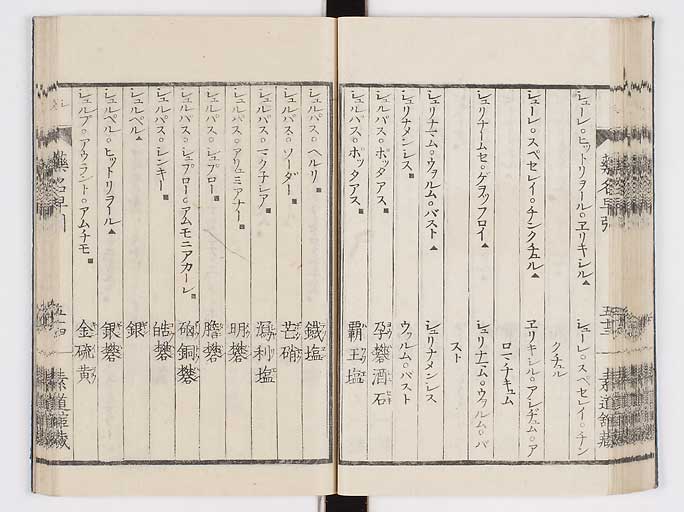 藥名早引
五十三
素道館藏
シューレ。ヒットリヲール。ヱリキシル▲
シューレ。スペセレイ。チン
クチュル
シューレ。スペセレイ。チンクチュル▲
ヱリキシル。アレヂュム。ア
ロマチキュム
シュリナームセ。ゲヲッフロイ▲
シュリナーム。ウァルム。バ
スト
シュリナーム。ウァルム。バスト▲
ウァルム。バスト
シュリナメンレス
シュリナメンレス
シュルパス。ポッタアス
孕礬酒石
シュルパス。ポッタアス
覇王塩
シュルパス。ヘルリ
鐵塩
シュルパス。ソーダー
芒硝
シュルパス。マクチシア
瀉利塩
シュルパス。アリュミアナー
明礬
シュルパス。シュプロー
膽礬
シュルパス。シュプロー。アムモニアカーレ
硇銅礬
シュルパス。シンキー
皓礬
シュルペル▲
銀
シュルペル。ヒットリヲール▲
銀礬
シュルプ。アウラント。アムチモ
金硫黄
藥名早引
五十四
素道館藏